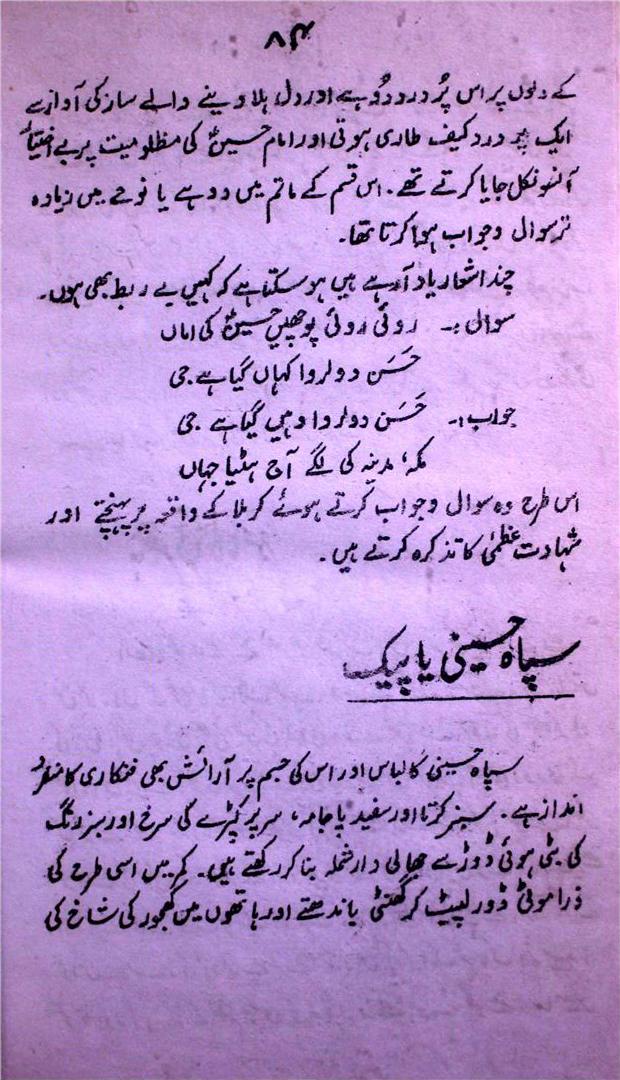 ۸۴
کے دلوں پر اس پُر درد دُوہے اور دل ہلا دینے والے ساز کی آواز سے
ایک پُر درد کیف طاری ہوتی اور امام حسینؑ کی مظلومیت پر بے اختیار
آنسو نکل جایا کرتے تھے۔ اس قسم کے ماتم میں دوہے یا نوحے میں زیادہ
تر سوال و جواب ہوا کرتا تھا۔
چند اشعار یاد آرہے ہیں ہو سکتا ہے کہ کہیں بے ربط بھی ہوں۔
سوال :۔ روئی روئی پوچھیں حسینؑ کی اماں
حَسَن دولروا کہاں گیا ہے جی
جواب :۔ حَسَن دولروا وہیں گیا ہے جی
مکہ، مدینہ کی لگے آج ہٹیا جہاں
اس طرح وہ سوال و جواب کرتے ہوئے کربلا کے واقعہ پر پہنچتے اور
شہادت عظمٰی کا تذکرہ کرتے ہیں۔
سپاہ حسینی یا پیک
سپاہ حسینی کا لباس اور اس کی جسم پر آرائش بھی فنکاری کا منفرد
انداز ہے۔ سبز کرتا اور سفید پاجامہ، سر پر کپڑے کی سرخ اور سبز رنگ
کی بٹی ہوئی ڈوڑ سے جالی دار شملہ بنا کر رکھتے ہیں۔ کمر میں اسی طرح کی
ذرا موٹی ڈور لپیٹ کر گھنٹی باندھتے اور ہاتھوں میں کھجور کی شاخ کی